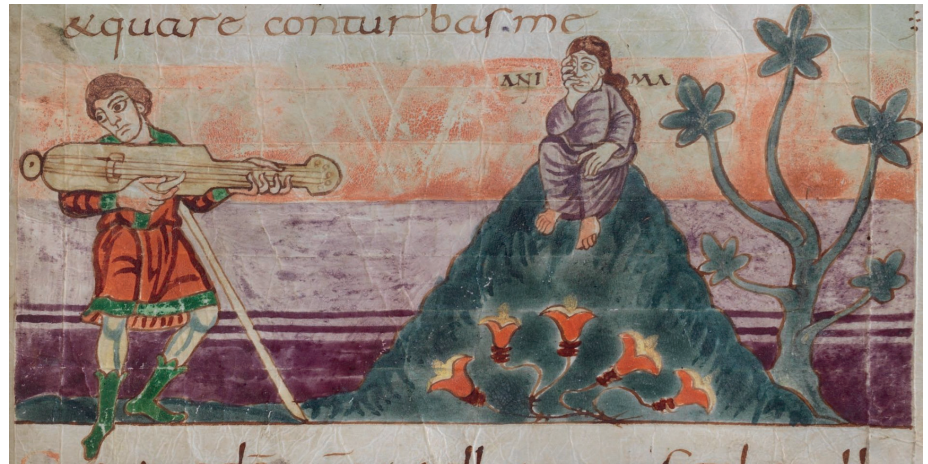 &quare conturbas me
ANI MA